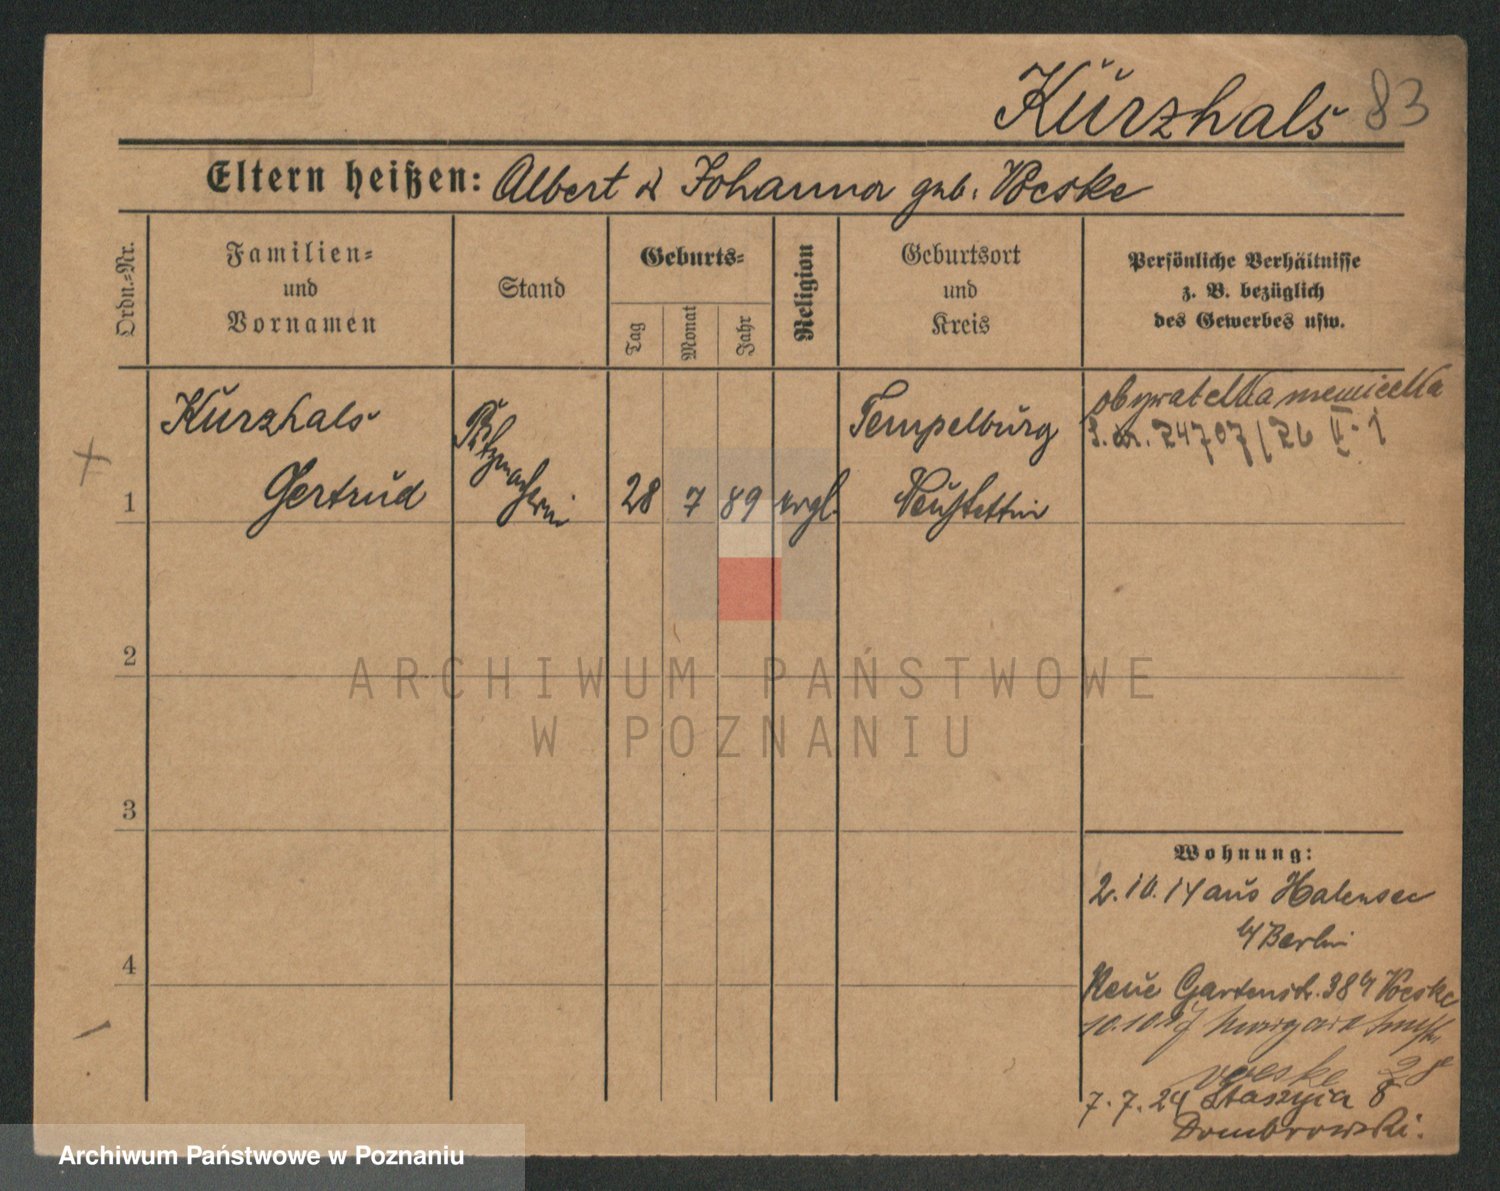 Kurzhals 83
Eltern heißen: Albert & Johanna geb. Voeske
Ordn.-Nr.
Familien-
und
Vornamen
Stand
Geburts-
Tag
Monat
Jahr
Religion
Geburtsort
und
Kreis
Persönliche Verhältnisse
z. B. bezüglich
des Gewerbes usw.
1
Kurzhals
Gertrud
Putzmacherin
28 7 89
evgl.
Tempelburg
Neustettin
obywatelka niemiecka
24707/26 II-1
2
3
4
Wohnung:
2.10.14 aus Halensee
b/Berlin
Neue Gartenstr. 38 b/ Voeske
10.10.17
Voeske 28
7.7.24 Staszyca 8
Dombrowski.
ARCHIWUM PAŃSTWOWE
W POZNANIU
Archiwum Państwowe w Poznaniu